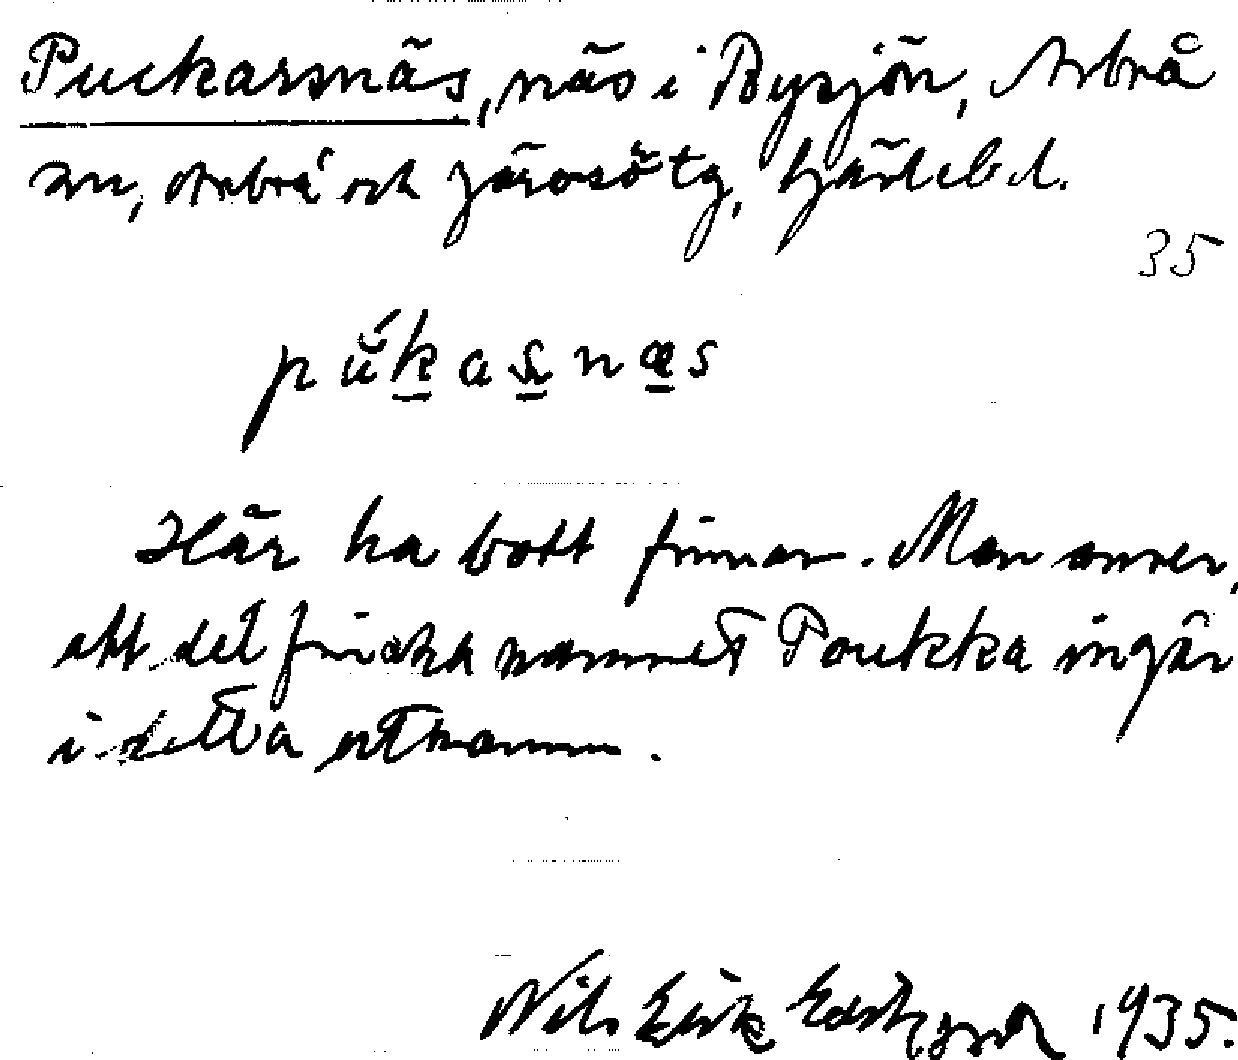 Puckarsnäs, näs i Bysjön, Arbrå
sn, Arbrå och Järvsö tg, Gävlebg l.
35
pu̇́kasnæs
Här ha bott finnar. Man anser,
att det finska namnet Poukka ingår
i detta ortnamn.
Nils Erik 1935.